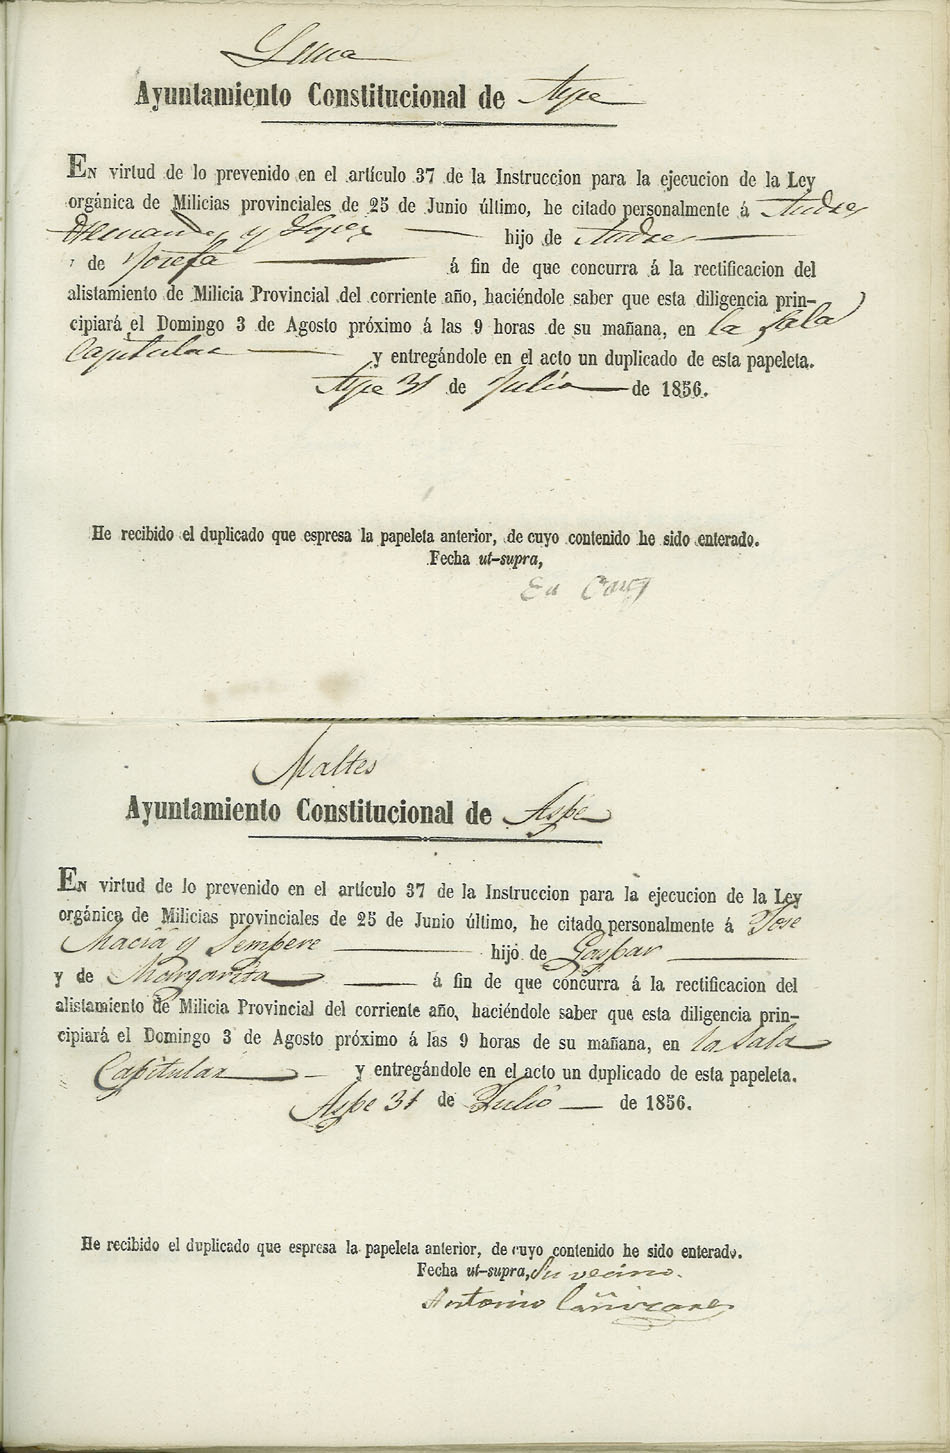 Ayuntamiento Constitucional de Aspe
En virtud de lo prevenido en el artículo 37 de la Instruccion para la ejecucion de la Ley
orgánica de Milicias provinciales de 25 de Junio último, he citado personalmente á Andres
Hernandez y Lopez hijo de Andres
de Josefa á fin de que concurra á la rectificacion del
alistamiento de Milicia Provincial del corriente año, haciéndole saber que esta diligencia prin-
cipiará el Domingo 3 de Agosto próximo á las 9 horas de su mañana, en la Sala
Capitular y entregándole en el acto un duplicado de esta papeleta.
Aspe 31 de Julio de 1856.
He recibido el duplicado que espresa la papeleta anterior, de cuyo contenido he sido enterado.
Fecha ut-supra,
Maltes
Ayuntamiento Constitucional de Aspe
En virtud de lo prevenido en el artículo 37 de la Instruccion para la ejecucion de la Ley
orgánica de Milicias provinciales de 25 de Junio último, he citado personalmente á José
Maciá y Sempere hijo de Gaspar
y de Margarita á fin de que concurra á la rectificacion del
alistamiento de Milicia Provincial del corriente año, haciéndole saber que esta diligencia prin-
cipiará el Domingo 3 de Agosto próximo á las 9 horas de su mañana, en la Sala
Capitular y entregándole en el acto un duplicado de esta papeleta.
Aspe 31 de Julio de 1856.
He recibido el duplicado que espresa la papeleta anterior, de cuyo contenido he sido enterado.
Fecha ut-supra, Su vecino.
Antonio Cañizares